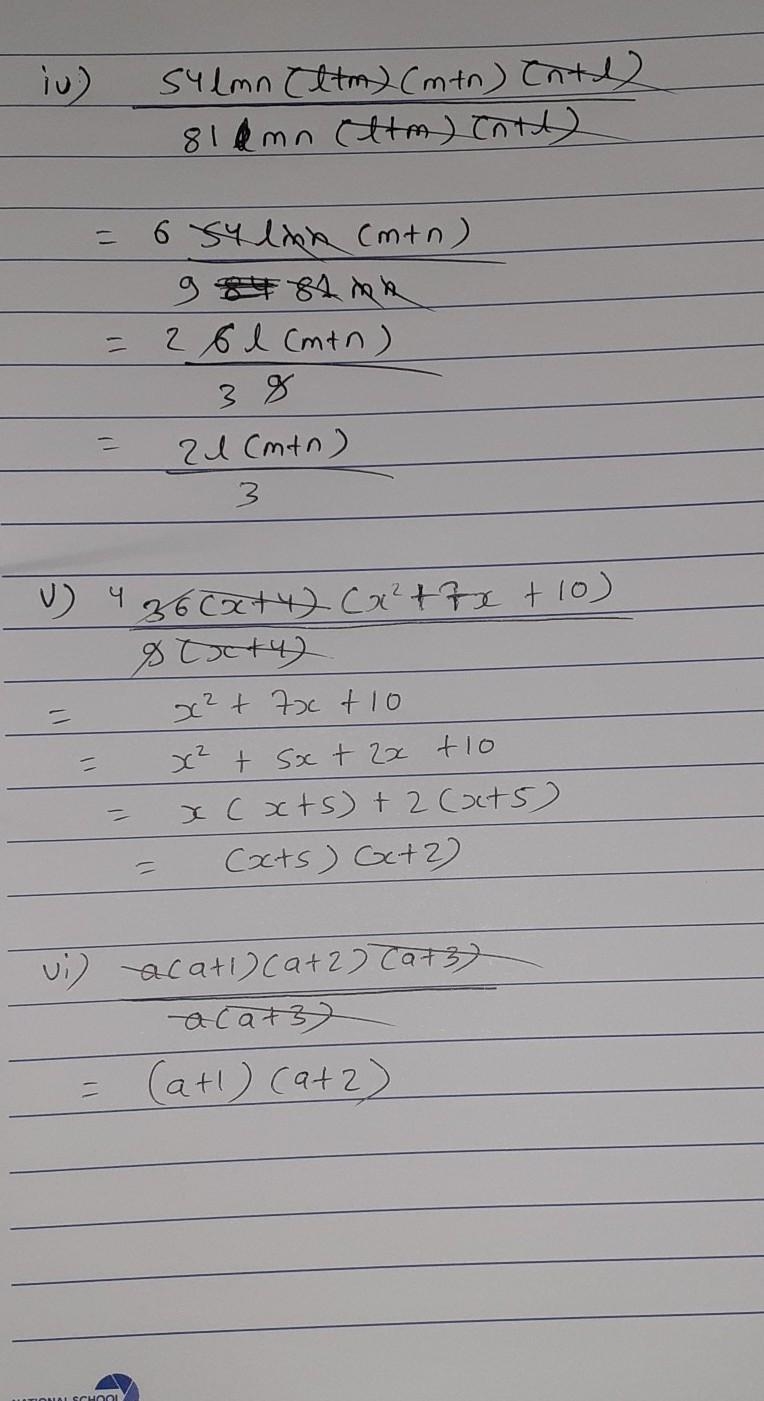 iv) 54lmn (l+m) (m+n) (n+l)
81 mn (l+m) (n+l)
= 6 54 lmn (m+n)
9 81 mn
= 2 6 l (m+n)
3 9
= 2l (m+n)
3
v) 4 36(x+4) (x²+7x + 10)
9 (x+4)
= x² + 7x + 10
= x² + 5x + 2x + 10
= x (x+5) + 2 (x+5)
= (x+5) (x+2)
vi) a(a+1)(a+2)(a+3)
a(a+3)
= (a+1) (a+2)
NATIONAL SCHOOL